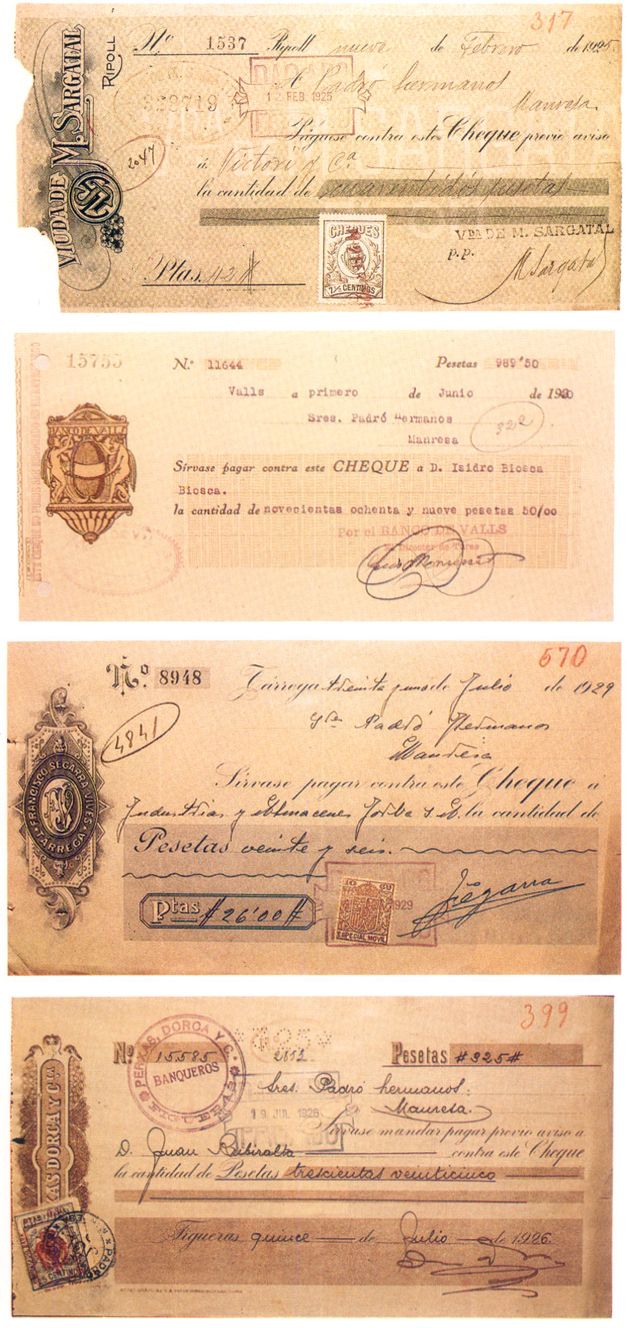 317
VIUDA DE M. SARGATAL
RIPOLL
Nº 1537 Ripoll nueve de Febrero de 1925
322719
PAGADO
12 FEB. 1925
A Padró hermanos
Manresa
Páguese contra este Cheque previo aviso
2047
á Victori y Cª
la cantidad de cuarentidós pesetas
CHEQUES
7½ CENTIMOS
VDA DE M. SARGATAL
p.p.
M Sargatal
Ptas. 42
15755
N.º 11644 Pesetas 989'50
Valls a primero de Junio de 1920
Sres. Padró Hermanos
Manresa
322
BANCO DE VALLS
Sírvase pagar contra este CHEQUE a D. Isidro Biosca
Biosca.
la cantidad de novecientas ochenta y nueve pesetas 50/00
Por el BANCO DE VALLS
570
Nº. 8948 Tárrega treinta uno de Julio de 1929
Padró Hermanos
Manresa
4841
FRANCISCO SEGARRA VIVES
TARREGA
Sírvase pagar contra este Cheque á
Industrias y Almacenes Jorba S.A. la cantidad de
Pesetas veinte y seis.
Ptas #26'00#
1929
ESPECIAL MOVIL
Segarra
399
Nº 15585 Pesetas #325#
PERXAS, DORCA Y C.
BANQUEROS
FIGUERAS
Sres. Padró hermanos.
Manresa.
19 JUL 1926
Sírvase mandar pagar previo aviso a
D. Juan Ribiralta contra este Cheque
la cantidad de Pesetas trescientas veinticinco
Figueras quince de Julio de 1926